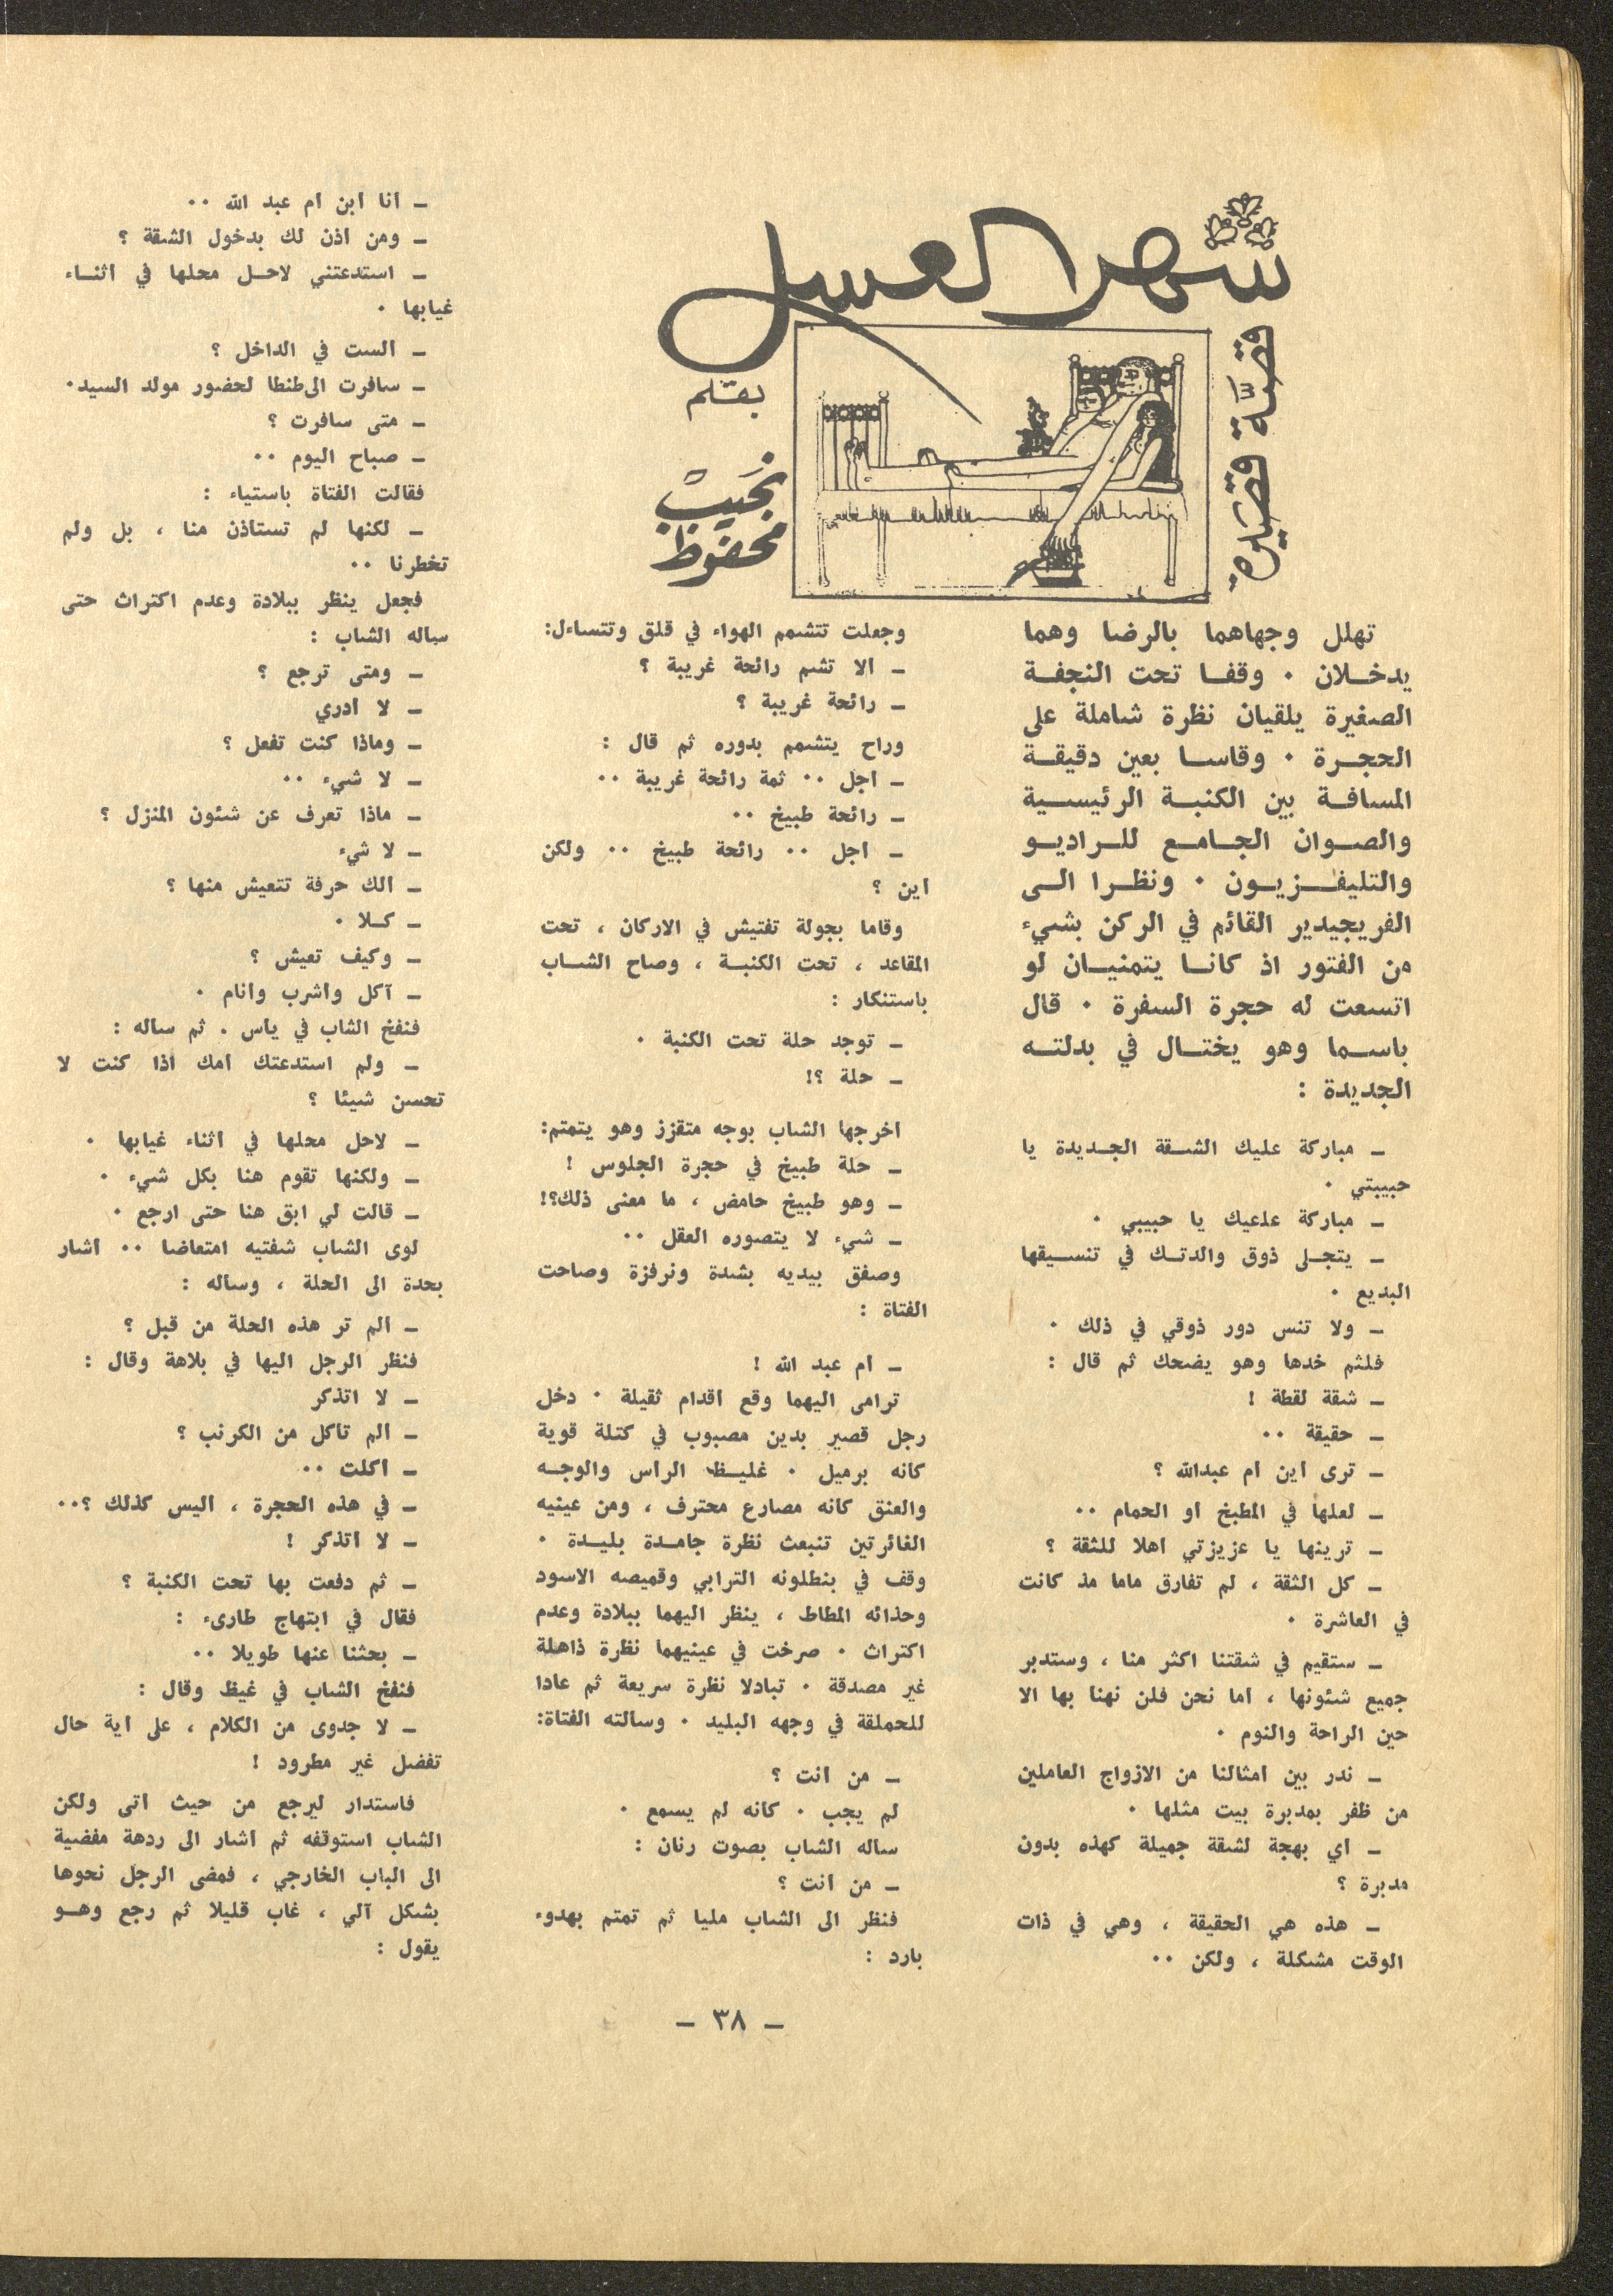 شهر العسل
قصة قصيرة
بقلم
نجيب
محفوظ
تهلل وجهاهما بالرضا وهما
يدخلان . وقفا تحت النجفة
الصغيرة يلقيان نظرة شاملة على
الحجرة . وقاسا بعين دقيقة
المسافة بين الكنبة الرئيسية
والصوان الجامع للراديو
والتليفزيون . ونظرا الى
الفريجيدير القائم في الركن بشيء
من الفتور اذ كانا يتمنيان لو
اتسعت له حجرة السفرة . قال
باسما وهو يختال في بدلته
الجديدة :
– مباركة عليك الشقة الجديدة يا
حبيبتي .
– مباركة علعيك يا حبيبي .
– يتجلى ذوق والدتك في تنسيقها
البديع .
– ولا تنس دور ذوقي في ذلك .
فلثم خدها وهو يضحك ثم قال :
– شقة لقطة !
– حقيقة ..
– ترى اين ام عبدالله ؟
– لعلها في المطبخ او الحمام ..
– ترينها يا عزيزتي اهلا للثقة ؟
– كل الثقة ، لم تفارق ماما مذ كانت
في العاشرة .
– ستقيم في شقتنا اكثر منا ، وستدبر
جميع شئونها ، اما نحن فلن نهنا بها الا
حين الراحة والنوم .
– ندر بين امثالنا من الازواج العاملين
من ظفر بمدبرة بيت مثلها .
– اي بهجة لشقة جميلة كهذه بدون
مدبرة ؟
– هذه هي الحقيقة ، وهي في ذات
الوقت مشكلة ، ولكن ..
وجعلت تتشمم الهواء في قلق وتتساءل:
– الا تشم رائحة غريبة ؟
– رائحة غريبة ؟
وراح يتشمم بدوره ثم قال :
– اجل .. ثمة رائحة غريبة ..
– رائحة طبيخ ..
– اجل .. رائحة طبيخ .. ولكن
اين ؟
وقاما بجولة تفتيش في الاركان ، تحت
المقاعد ، تحت الكنبة ، وصاح الشاب
باستنكار :
– توجد حلة تحت الكنبة .
– حلة ؟!
اخرجها الشاب بوجه متقزز وهو يتمتم:
– حلة طبيخ في حجرة الجلوس !
– وهو طبيخ حامض ، ما معنى ذلك؟!
– شيء لا يتصوره العقل ..
وصفق بيديه بشدة ونرفزة وصاحت
الفتاة :
– ام عبد الله !
ترامى اليهما وقع اقدام ثقيلة . دخل
رجل قصير بدين مصبوب في كتلة قوية
كانه برميل . غليظ الراس والوجه
والعنق كانه مصارع محترف ، ومن عينيه
الغائرتين تنبعث نظرة جامدة بليدة .
وقف في بنطلونه الترابي وقميصه الاسود
وحذائه المطاط ، ينظر اليهما ببلادة وعدم
اكتراث . صرخت في عينيهما نظرة ذاهلة
غير مصدقة . تبادلا نظرة سريعة ثم عادا
للحملقة في وجهه البليد . وسالته الفتاة:
– من انت ؟
لم يجب . كانه لم يسمع .
ساله الشاب بصوت رنان :
– من انت ؟
فنظر الى الشاب مليا ثم تمتم بهدوء
بارد :
– انا ابن ام عبد الله ..
– ومن اذن لك بدخول الشقة ؟
– استدعتني لاحل محلها في اثناء
غيابها .
– الست في الداخل ؟
– سافرت الى طنطا لحضور مولد السيد.
– متى سافرت ؟
– صباح اليوم ..
فقالت الفتاة باستياء :
– لكنها لم تستاذن منا ، بل ولم
تخطرنا ..
فجعل ينظر ببلادة وعدم اكتراث حتى
ساله الشاب :
– ومتى ترجع ؟
– لا ادري
– وماذا كنت تفعل ؟
– لا شيء ..
– ماذا تعرف عن شئون المنزل ؟
– لا شيء
– الك حرفة تتعيش منها ؟
– كلا .
– وكيف تعيش ؟
– آكل واشرب وانام .
فنفخ الشاب في ياس . ثم ساله :
– ولم استدعتك امك اذا كنت لا
تحسن شيئا ؟
– لاحل محلها في اثناء غيابها .
– ولكنها تقوم هنا بكل شيء .
– قالت لي ابق هنا حتى ارجع .
لوى الشاب شفتيه امتعاضا .. اشار
بحدة الى الحلة ، وساله :
– الم تر هذه الحلة من قبل ؟
فنظر الرجل اليها في بلاهة وقال :
– لا اتذكر
– الم تاكل من الكرنب ؟
– اكلت ..
– في هذه الحجرة ، اليس كذلك ؟..
– لا اتذكر !
– ثم دفعت بها تحت الكنبة ؟
فقال في ابتهاج طارىء :
– بحثنا عنها طويلا ..
فنفخ الشاب في غيظ وقال :
– لا جدوى من الكلام ، على اية حال
تفضل غير مطرود !
فاستدار ليرجع من حيث اتى ولكن
الشاب استوقفه ثم اشار الى ردهة مفضية
الى الباب الخارجي ، فمضى الرجل نحوها
بشكل آلي ، غاب قليلا ثم رجع وهو
يقول :
– ٣٨ –